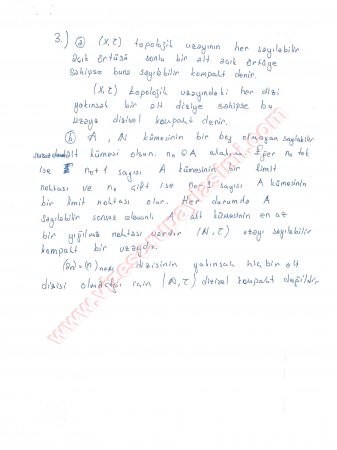 3.) (a) (X, τ) topolojik uzayının her sayılabilir
açık örtüsü sonlu bir alt açık örtüye
sahipse buna sayılabilir kompakt denir.
(X, τ) topolojik uzayındaki her dizi
yakınsak bir alt diziye sahipse bu
uzaya dizisel kompakt denir.
(b) A, N kümesinin bir boş olmayan sayılabilir
alt kümesi olsun. n₀ ∈ A alalım. Eğer n₀ tek
ise n₀+1 sayısı A kümesinin bir limit
noktası ve n₀ çift ise n₀-1 sayısı A kümesinin
bir limit noktası olur. Her durumda A
sayılabilir sonsuz elemanlı alt kümesinin en az
bir yığılma noktası vardır (N, τ) uzayı sayılabilir
kompakt bir uzaydır.
(an) = (n) dizisinin yakınsak hiç bir alt
dizisi olmadığı için (N, τ) dizisel kompakt değildir.